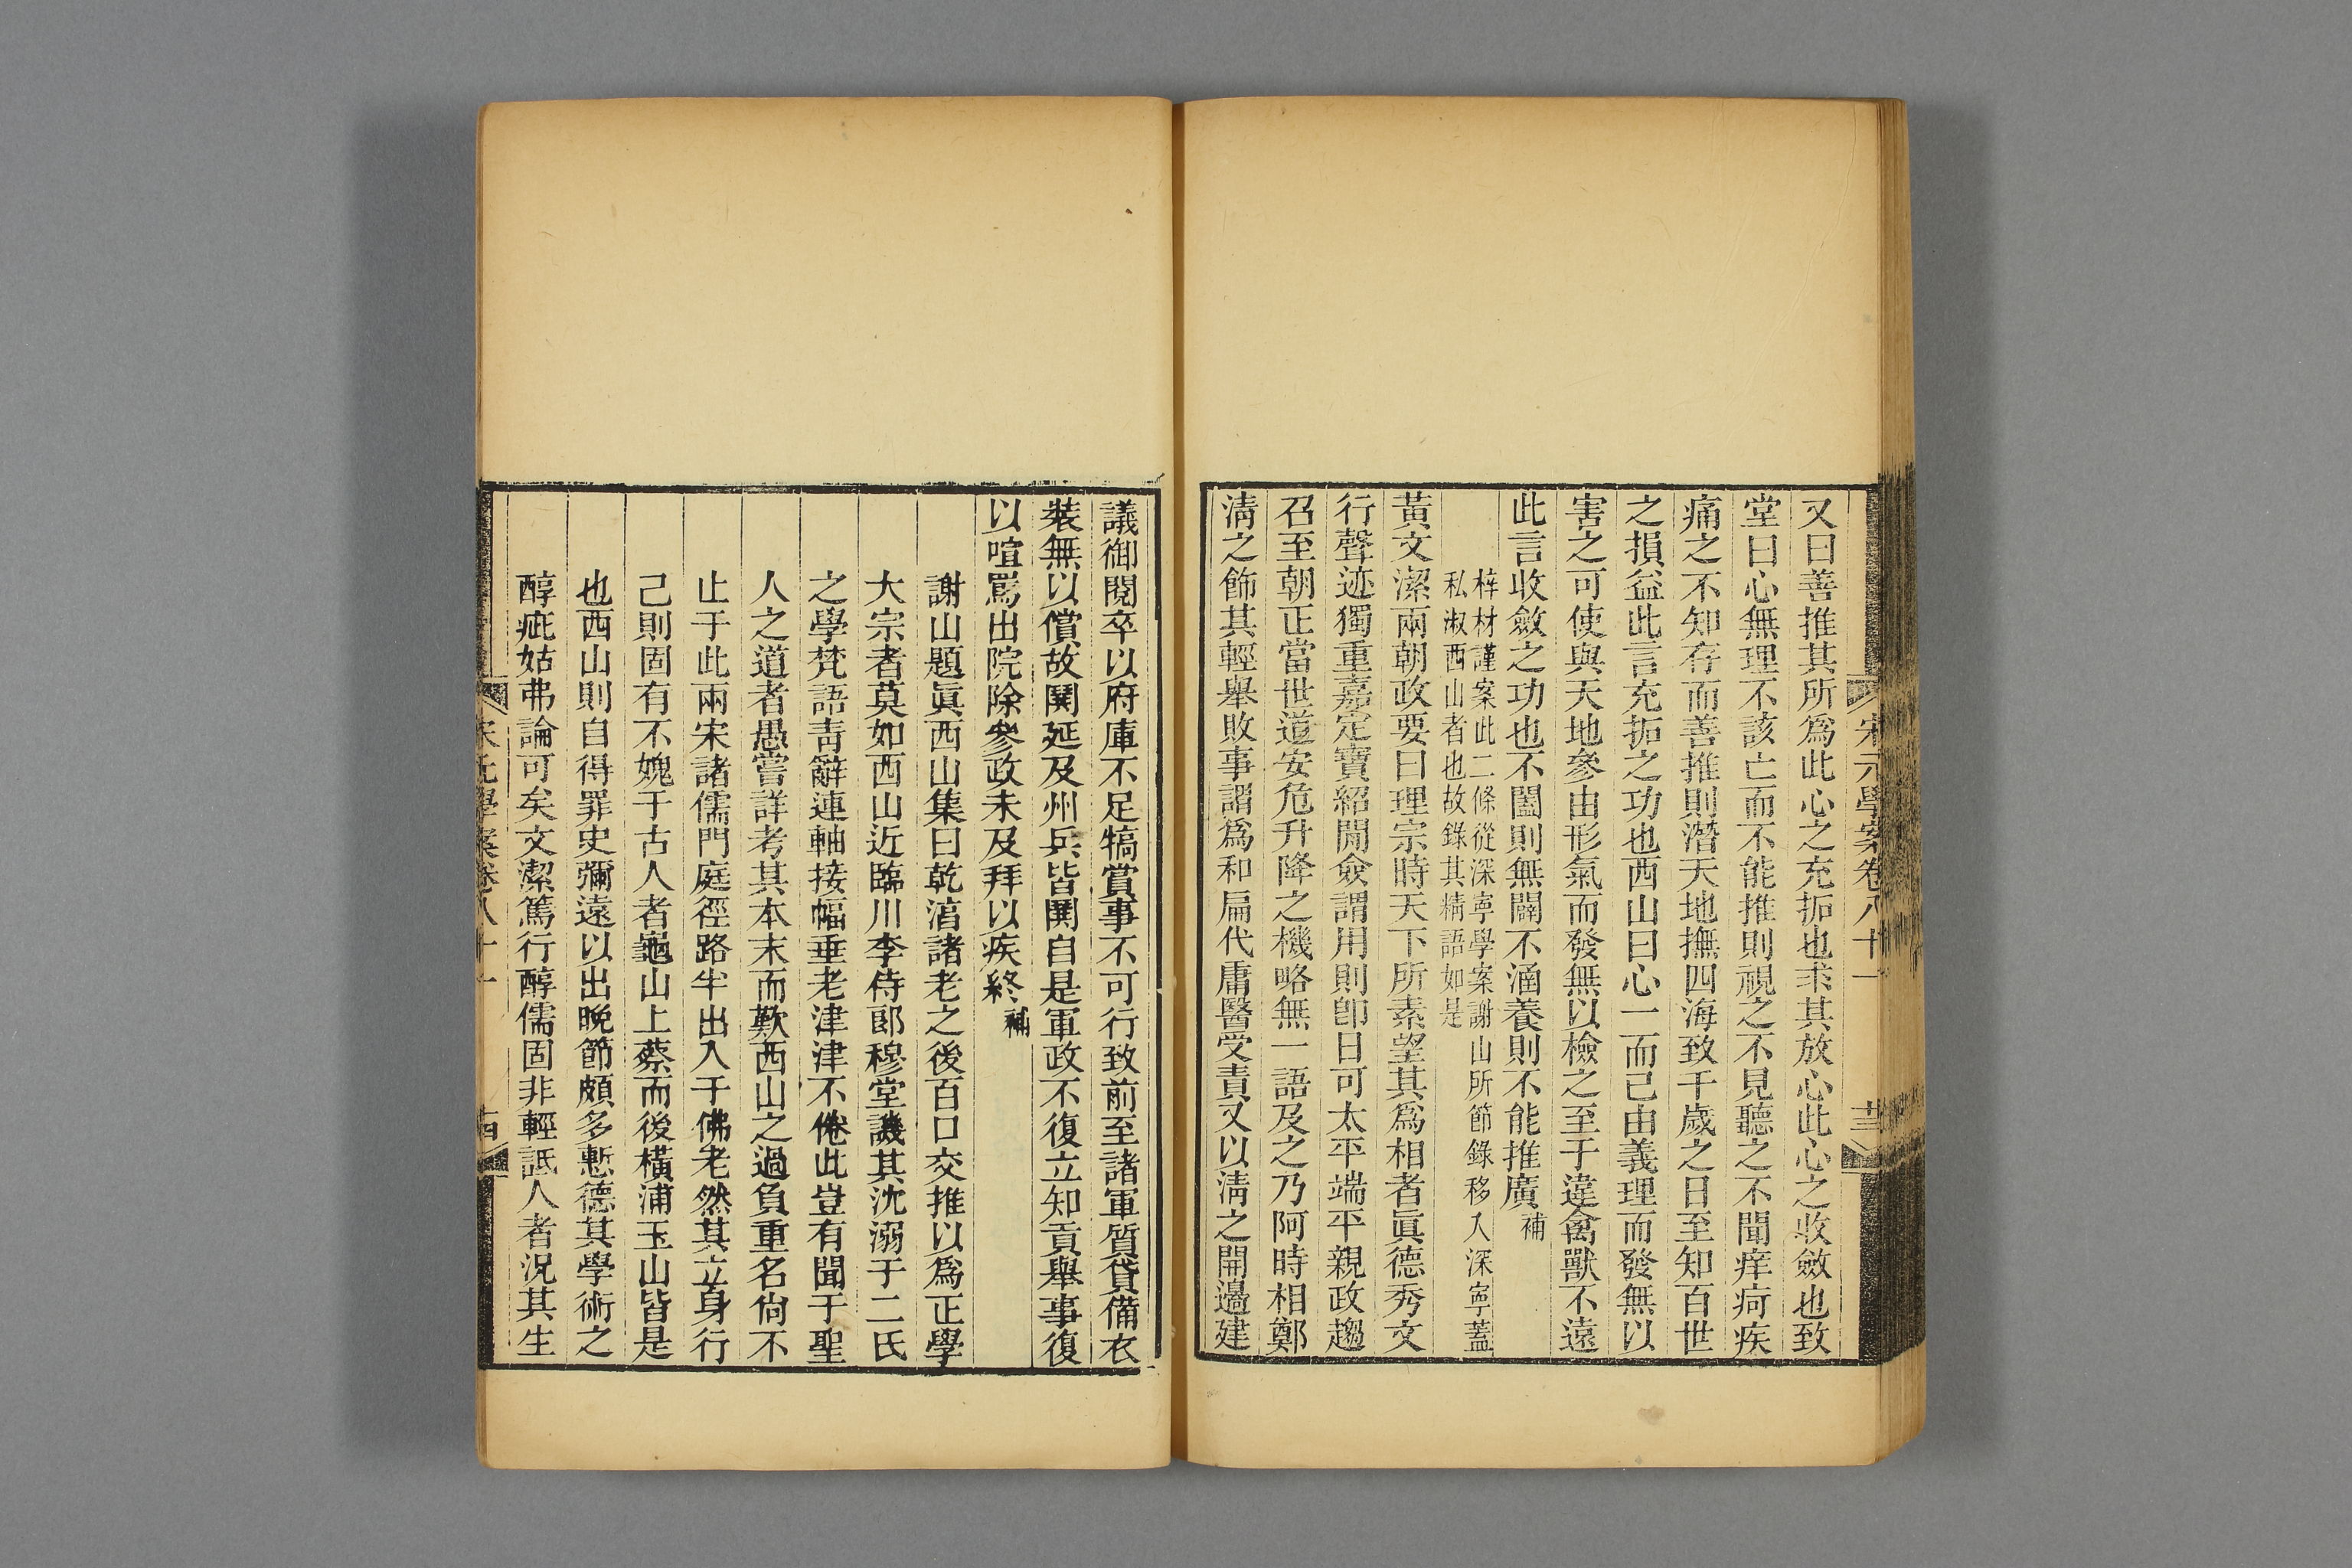 宋元學案卷八十一
十三
又曰善推其所爲此心之充拓也求其放心此心之收斂也致
堂曰心無理不該亡而不能推則視之不見聽之不聞痒疴疾
痛之不知存而善推則潛天地撫四海致千歲之日至知百世
之損益此言充拓之功也西山曰心一而已由義理而發無以
害之可使與天地參由形氣而發無以檢之至于違禽獸不遠
此言收斂之功也不闔則無闢不涵養則不能推廣補
梓材謹案此二條從深寧學案謝山所節錄移入深寧蓋
私淑西山者也故錄其精語如是
黃文潔兩朝政要曰理宗時天下所素望其爲相者眞德秀文
行聲迹獨重嘉定寶紹閒僉謂用則卽日可太平端平親政趨
召至朝正當世道安危升降之機略無一語及之乃阿時相鄭
淸之飾其輕舉敗事謂爲和扁代庸醫受責又以淸之開邊建
議御閱卒以府庫不足犒賞事不可行致前至諸軍質貸備衣
裝無以償故閧延及州兵皆閧自是軍政不復立知貢舉事復
以喧罵出院除參政未及拜以疾終補
謝山題眞西山集曰乾淳諸老之後百口交推以爲正學
大宗者莫如西山近臨川李侍郎穆堂譏其沈溺于二氏
之學梵語靑辭連軸接幅垂老津津不倦此豈有聞于聖
人之道者愚嘗詳考其本末而歎西山之過負重名尙不
止于此兩宋諸儒門庭徑路半出入于佛老然其立身行
己則固有不媿于古人者龜山上蔡而後橫浦玉山皆是
也西山則自得罪史彌遠以出晚節頗多慙德其學術之
醇疵姑弗論可矣文潔篤行醇儒固非輕詆人者況其生
宋元學案卷八十一
十四